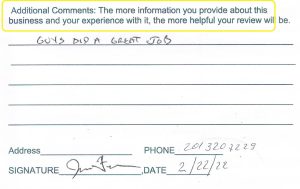 Additional Comments: The more information you provide about this
business and your experience with it, the more helpful your review will be.
GUYS DID A GREAT JOB
Address PHONE 2013207229
SIGNATURE DATE 2/22/22